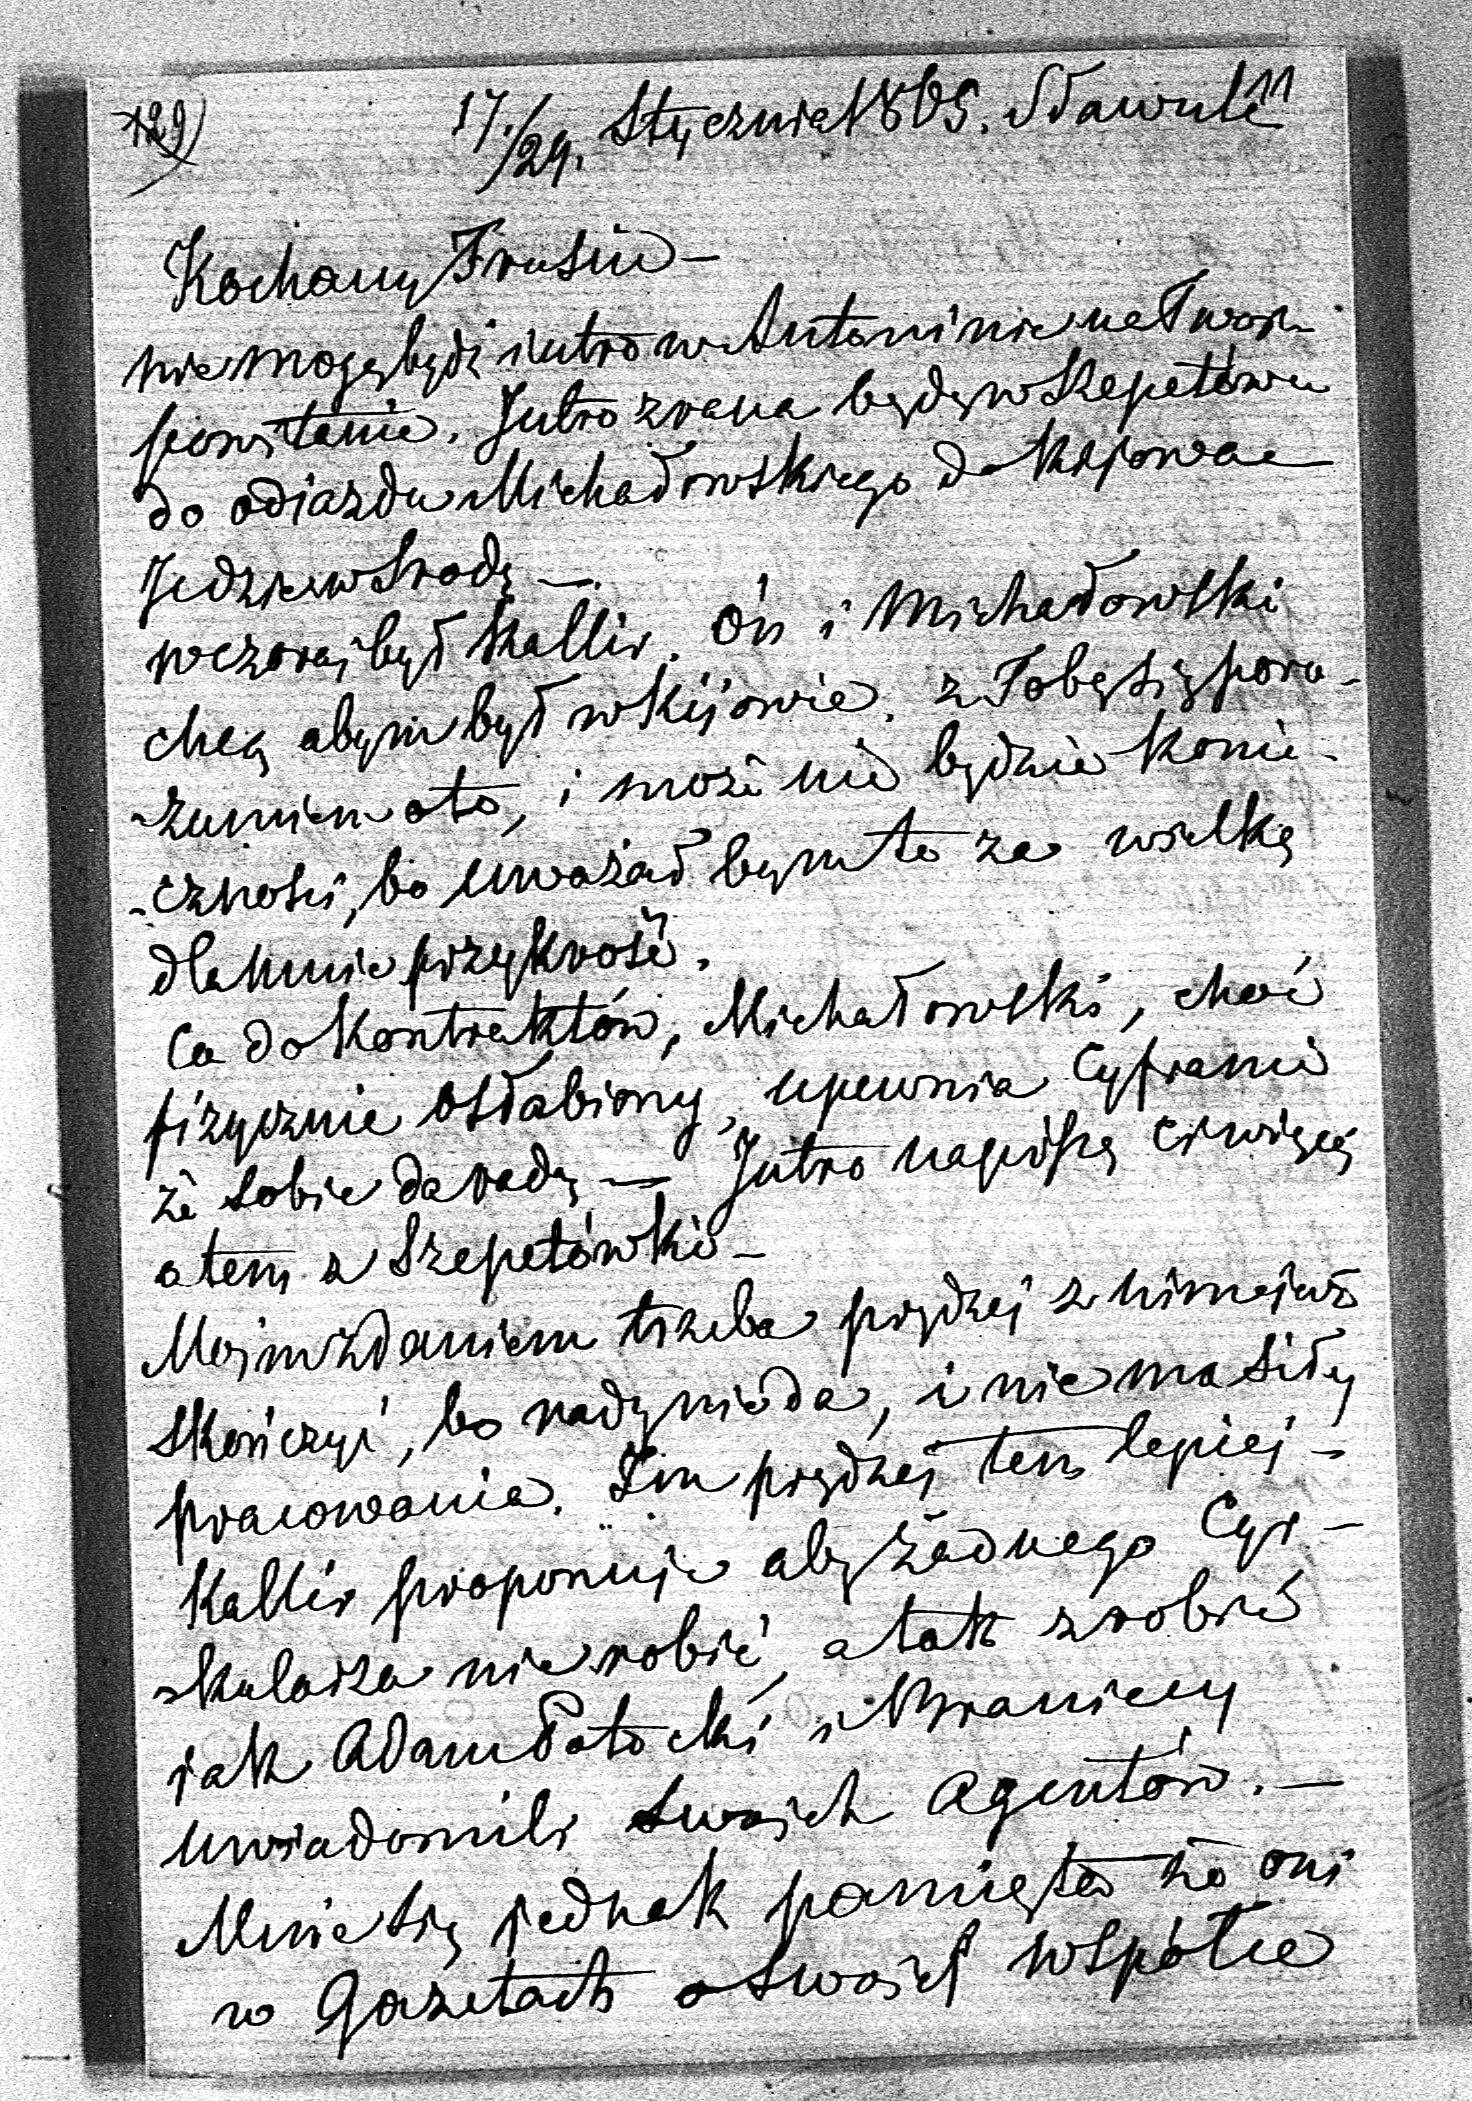 129)
17./29. Stycznia 1865. Sławuta 11
Kochany Frusiu –
nie mogę bydź iutro w Antoninie na Twoje
powitanie. Jutro zrana będę w Szepetówce
do odiazdu Michałowskiego do Kijowa
Jedzie w Srodę –
wczoraj był Kallir. On i Michałowski
chcą abym był w Kijowie. z Tobą się poro-
-zumiem oto, i może nie będzie konie-
-czności, bo uważał bym to za wielką
dla mnie przykrość.
Co do Kontraktów, Michałowski, choć
fizycznie osłabiony, upewnia Cyframi
że sobie da radę – Jutro napiszę ci więcej
o tem z Szepetówki –
Moim zdaniem trzeba prędzej z nim
skończyć, bo rady nie da, i nie ma siły
pracowania. Im prędzej tem lepiej –
Kallir proponuje aby żadnego Cyr-
-kularza nie robić, a tak zrobić
iak Adam Potocki i Braniccy
uwiadomili swoich Agentów. –
Mnie się jednak pamięta że oni
w Gazetach o swojej wspólce